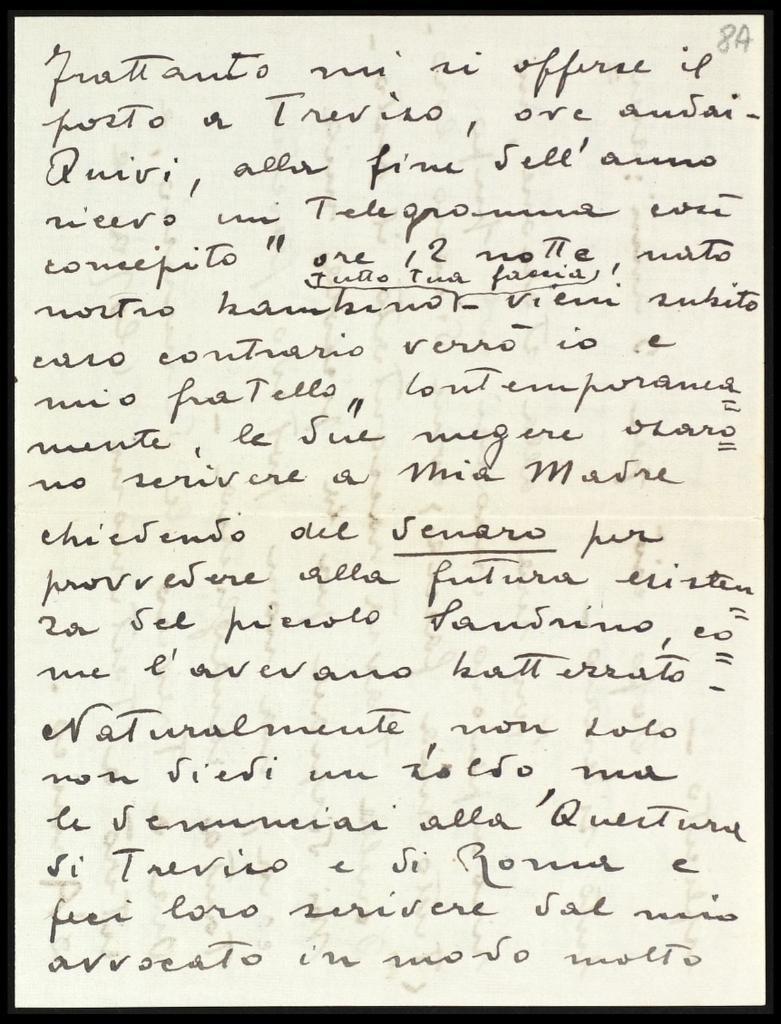 8A
Frattanto mi si offerse il
posto a Treviso, ove andai-
Quivi, alla fine dell'anno
ricevo un Telegramma così
concepito " ore 12 notte, nato
tutto tua faccia,
nostro bambino - vieni subito
caso contrario verrò io e
mio fratello " Contemporanea=
mente, le due megere osaro=
no scrivere a Mia Madre
chiedendo del denaro per
provvedere alla futura esisten=
za del piccolo Sandrino, co=
me l'avevano battezzato -
Naturalmente, non solo
non diedi un soldo, ma
le denunciai alla Questura
di Treviso e di Roma e
feci loro scrivere dal mio
avvocato in modo molto